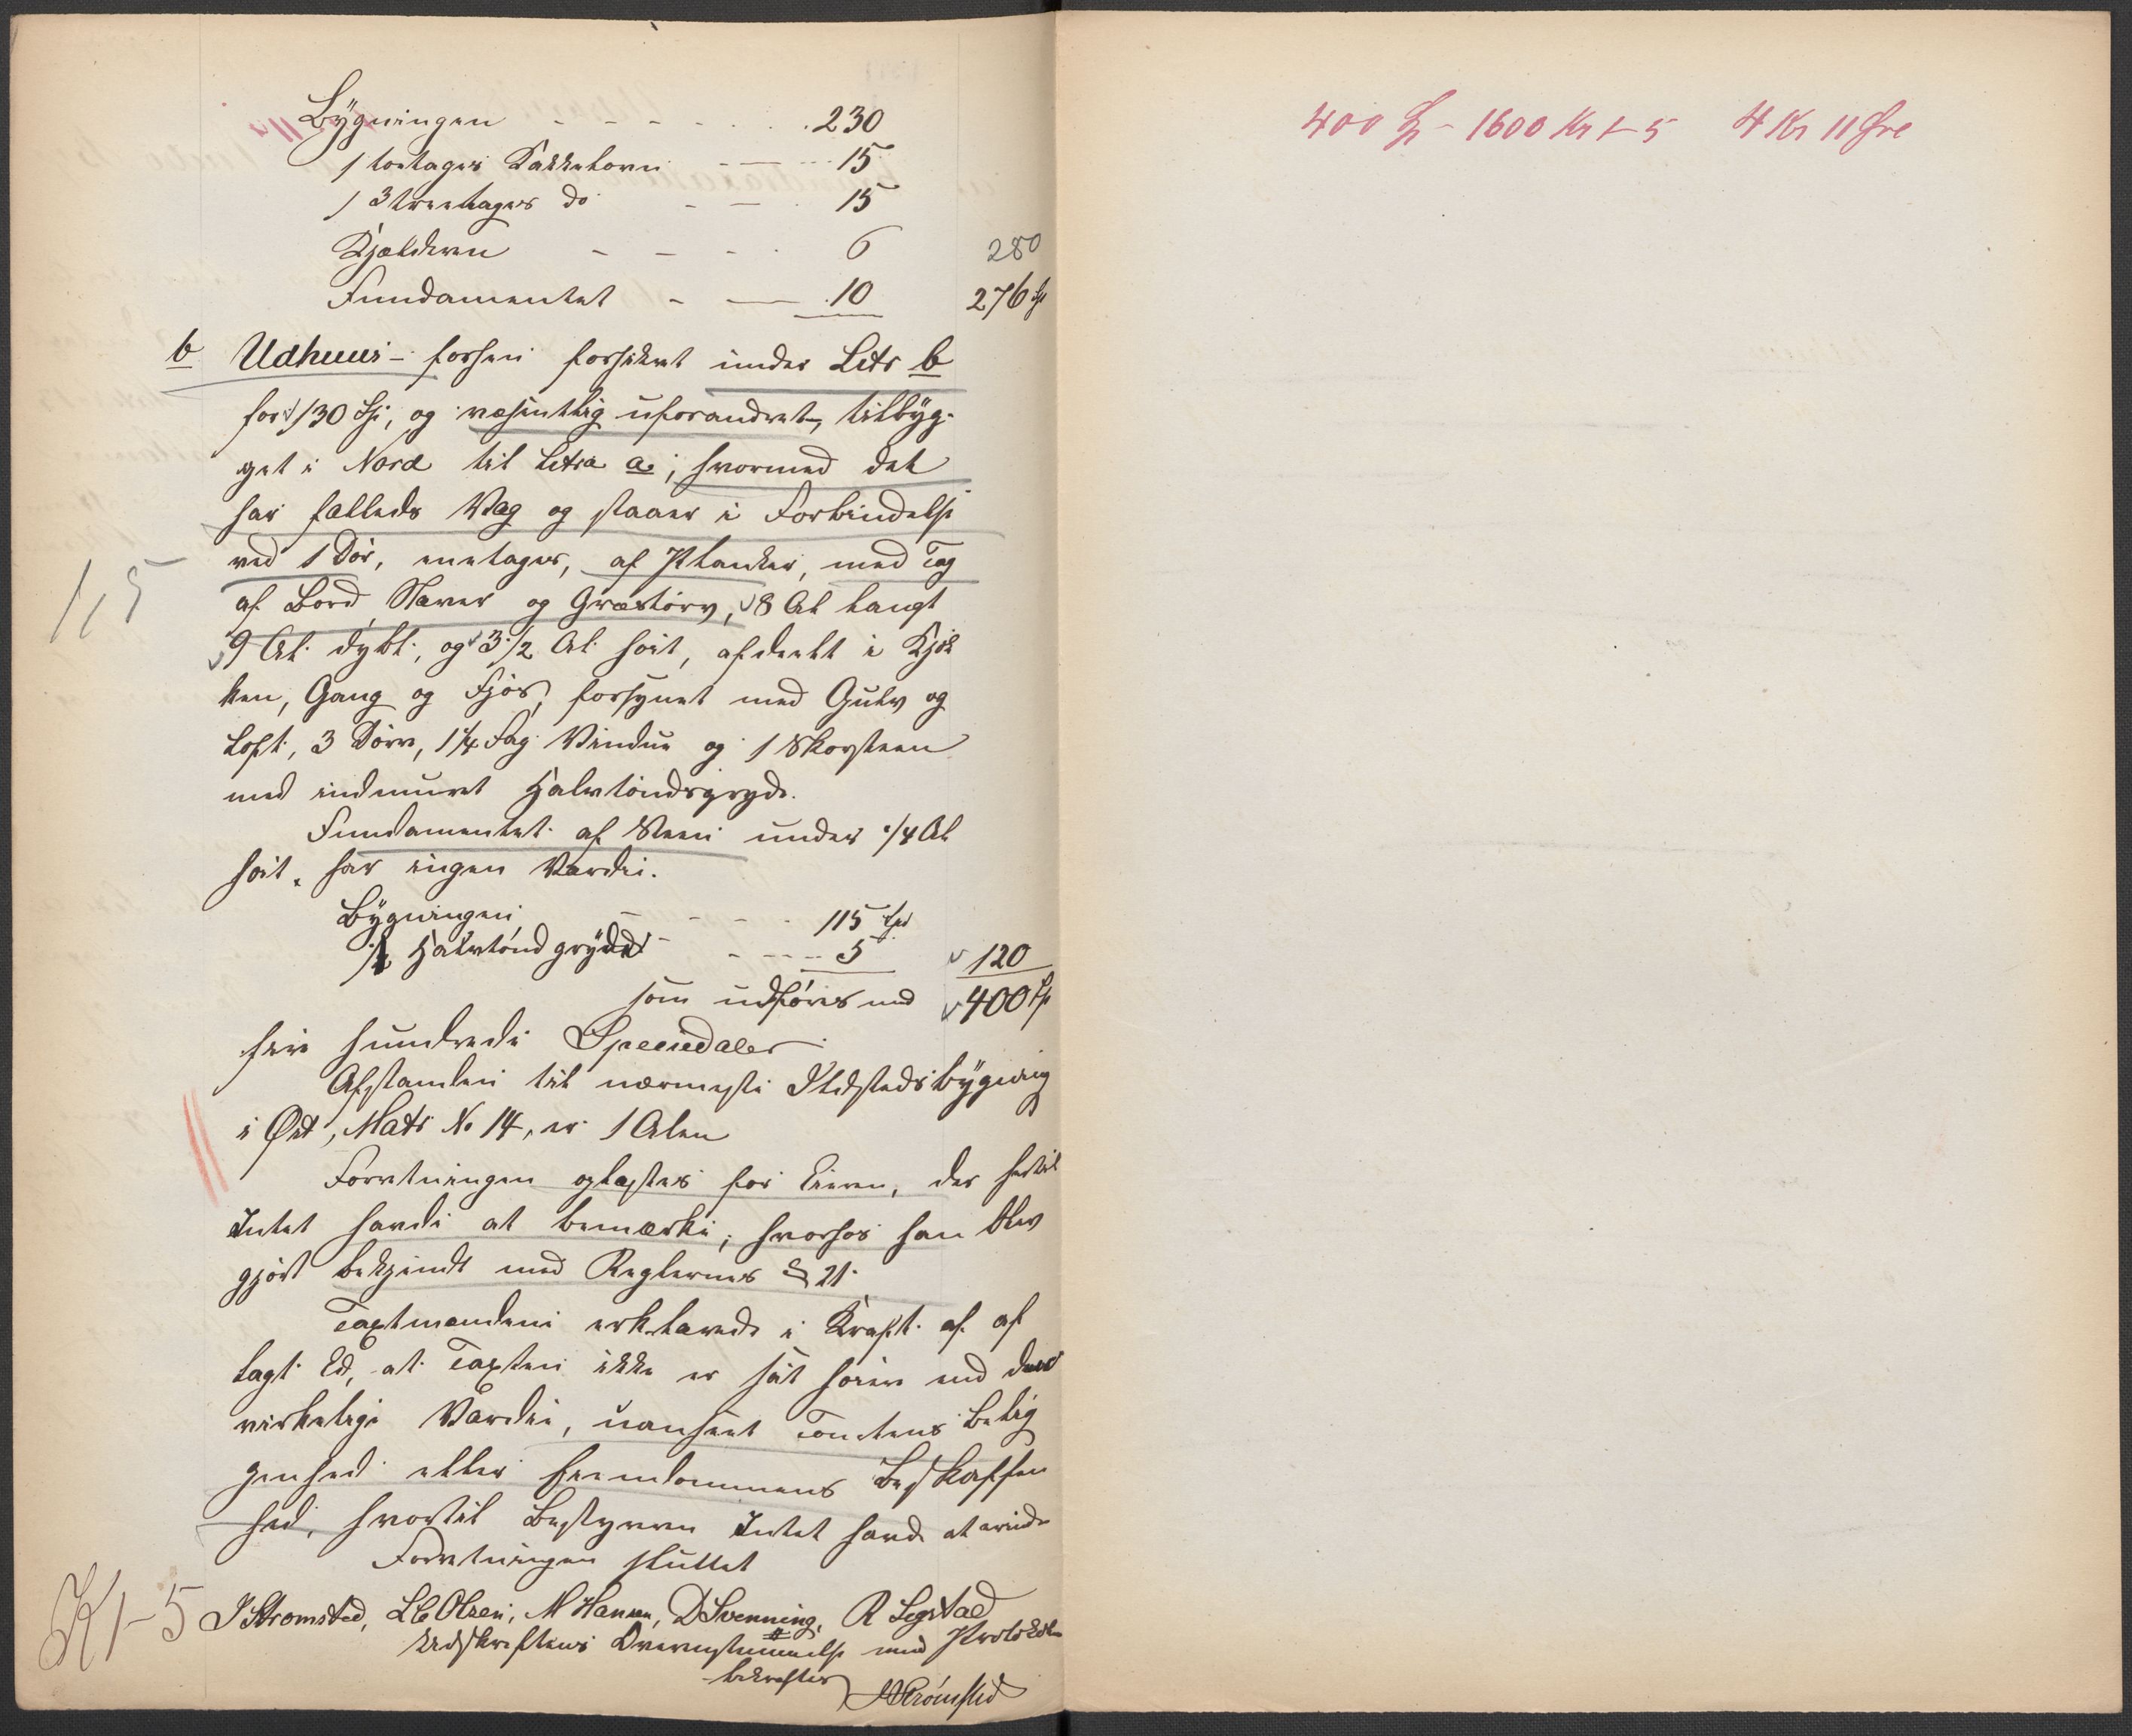 Bygningen - - - - - - 230
1 toetages Kakkelovn - - - 15
1 3 treetages do - - - 15
Kjælderen - - - - 6 280
Fundamentet - - 10 276 Sp
b Udhuus - forhen forsikret under Litr b
for 130 Sp, og væsentlig uforandret, tilbyg-
get i Nord til Litra a, hvormed det
har fælleds Væg og staaer i Forbindelse
ved 1 Dør, eenetages, af Planker, med Tag
af Bord, Næver og Græstørv, 8 Al langt
1,5
9 Al. dybt, og 3 1/2 Al. høit, afdeelt i Kjøk
ken, Gang og Fjøs, forsynet med Gulv og
Loft, 3 Døre, 1 1/4 Fag Vindue og 1 Skorsteen
med indmuret Halvtøndsgryde.
Fundamentet af Steen under 1/4 Al
høit, har ingen Værdie.
Bygningen - - - - 115 Spd
1/2 Halvtønd gryde - - - 5 120
som udføres med 400 Sp
fire hundrede Speciedaler
Afstanden til nærmeste Ildstedsbygning
i Øst, Matr No 14, er 1 Alen
Forretningen oplæstes for Eieren, der hertil
Intet havde at bemærke, hvorhos han blev
gjort bekjendt med Reglernes § 21.
Taxtmændene erklærede i Kraft af af
lagt Ed, at Taxten ikke er sat høiere end den
virkelige Værdie, uanseet Tomtens Belig
genhed eller Eiendommens Beskaffen
hed, hvortil Bestyreren Intet havde at erindre
Forretningen sluttet
K1-5
J Strømsted, L C Olsen, M Hansen, D Svenning, R Legstad
Udskriftens Overensstemmelse med Protokollen
bekræftes
J Strømsted
400 Sp - 1600 Kr 1-5 4 Kr 11 Øre